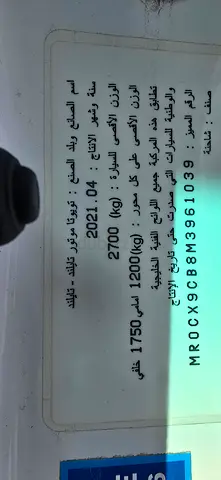 اسم الصانع وبلد الصنع : تويوتا موتور تايلند - تايلند
سنة وشهر الانتاج : 2021.04
الوزن الأقصى للسيارة : (kg) 2700
الوزن الأقصى على كل محور : (kg)1200 امامي 1750 خلفي
تطابق هذه المركبة جميع اللوائح الفنية الخليجية
والوطنية للسيارات التي صدرت حتى تاريخ الإنتاج
الرقم المميز : MR0CX9CB8M3961039
صنف : شاحنة